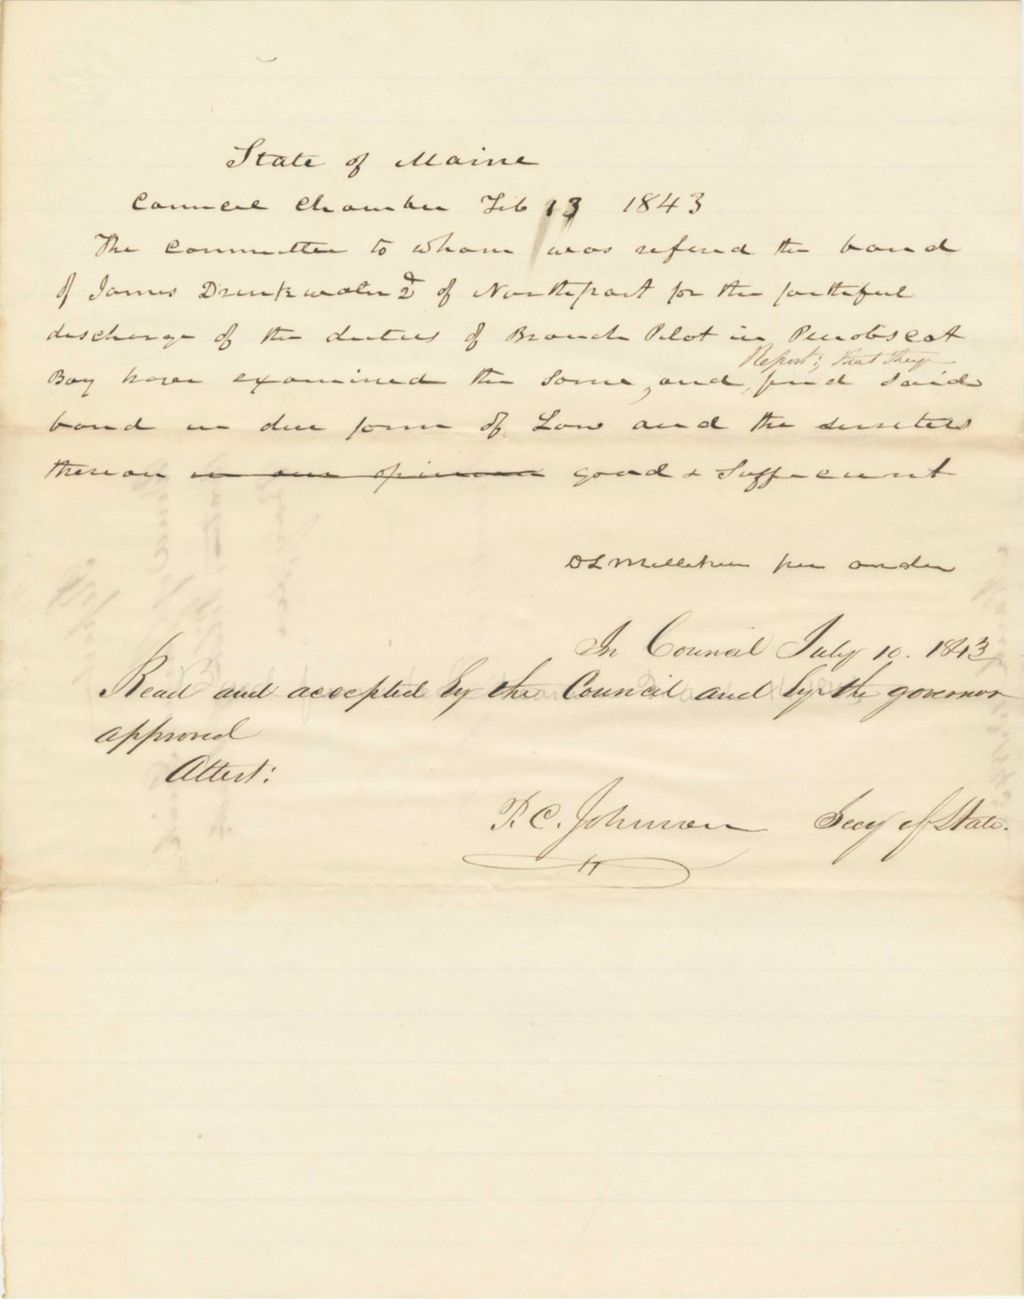 State of Maine
Council Chamber Feb 13 1843
The Committee to whom was referred the bond
of James Drinkwater 2d of Northport for the faithful
discharge of the duties of Branch Pilot in Penobscot
Report; that they
Bay have examined the same, and, find said
bond in due form of Law and the sureties
thereon in our opinion good & Sufficient
D L Milliken per order
In Council July 10. 1843
Read and accepted by the Council and by the governor
approved
Attest:
P. C. Johnson Secy of State.